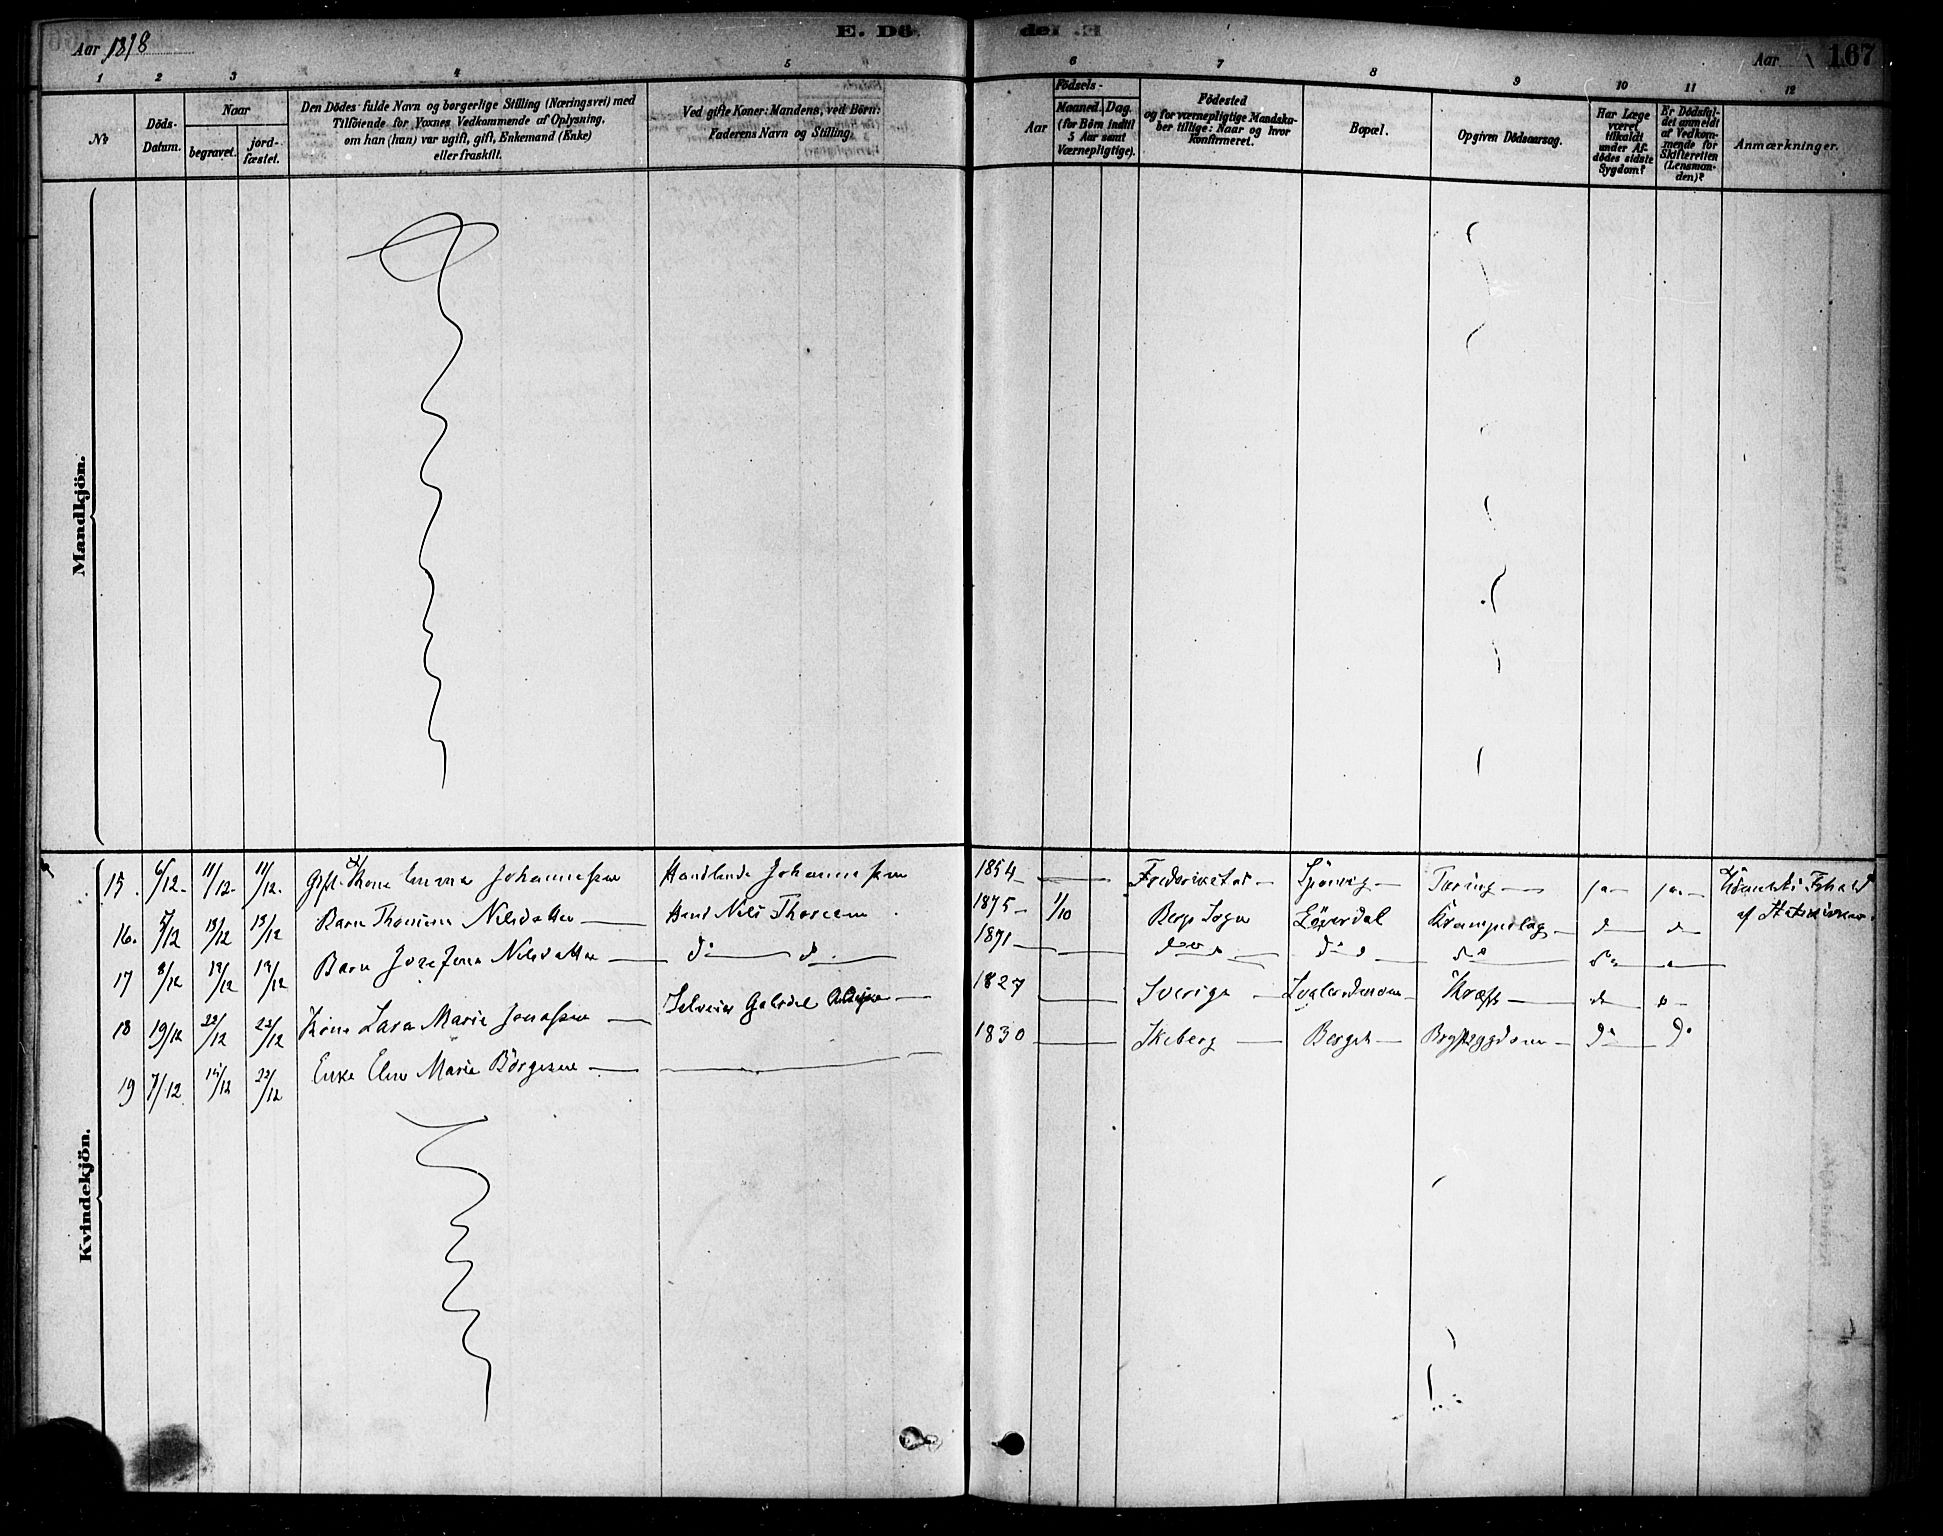 Aar 1878
E. Dö
del .E
Aar
167
1 2 3 4 5
6 7 8 9 10 11 12
No
Döds-
Datum.
Naar
begravet.
jord-
fæstet.
Den Dödes fulde Navn og borgerlige Stilling (Næringsvei) med
Tilföiende for Voxnes Vedkommende af Oplysning,
om han (hun) var ugift, gift, Enkemand (Enke)
eller fraskilt.
Ved gifte Koner: Mandens, ved Börn:
Faderens Navn og Stilling.
Födsels-
Aar
Maaned. Dag.
(for Börn indtil
5 Aar samt
Værnepligtige).
Födested
og for værnepligtige Mandska-
ber tillige: Naar og hvor
Konfirmeret.
Bopæl.
Opgiven Dödsaarsag.
Har Læge
været
tilkaldt
under Af-
dödes sidste
Sygdom?
Er Dödsfal-
det anmeldt
af Vedkom-
mende for
Skifteretten
(Lensman-
den)?
Anmærkninger.
Mandkjön.
Kvindekjön.
15. 6/12 11/12 11/12 Gift Kone Emma Johannessen Handlende Johannessen 1854 Frederikstad Tæring ja ja
16. 7/12 13/12 13/12 Barn Thomine Nilsdatter Nils 1875 1/10 Bergs Sogn do do
17 8/12 13/12 13/12 Barn Josefine Nilsdatter do do 1871 do do do do
18 19/12 23/12 23/12 Kone Lara Marie Jonassen Selveier Gabriel 1827 Sverige Kræft do
19 7/12 14/12 23/12 Enke Elen Marie Börgesen 1830 Skeberg Berget Brystsygdom do do